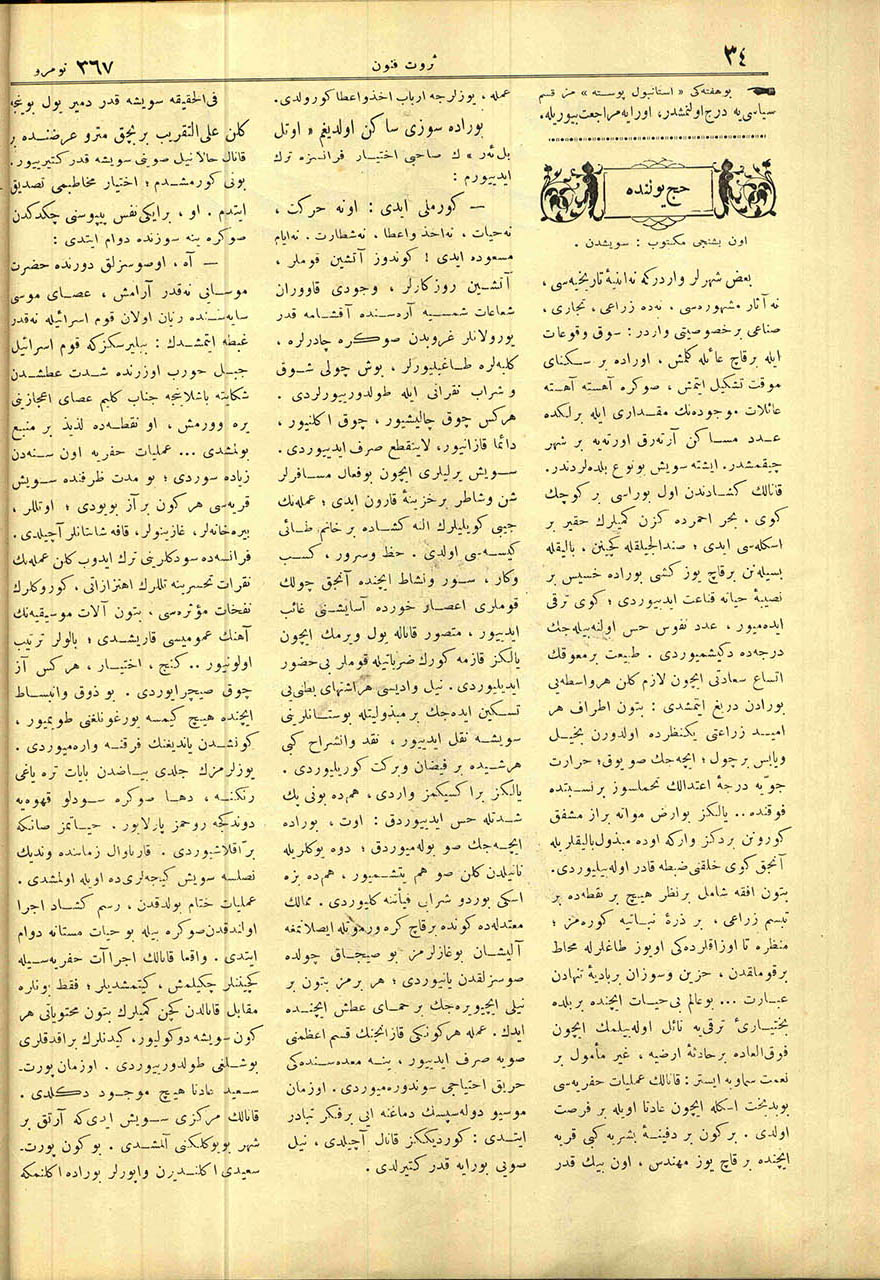 ٣٤
ثروت فنون
نومرو ٣٦٧
بوهفته‌كی « استانبول پوسته » مز قسم
سیاسی‌یه درج اولنمشدر، اورایه مراجعت بیوریله.
حج یولنده
اون بشنجی مكتوب : سویشدن .
بعض شهرلر واردركه نه ابنیهٔ تاریخیه‌سی ،
نه آثار مشهوره‌سی . نه‌ده زراعی ، تجاری ،
صناعی بر خصوصیتی واردر : سوق وقوعات
ایله برقاچ عائله كلمش ، اوراده بر سكنای
موقت تشكیل ایتمش ، صوكره آهسته آهسته
عائلات موجوده‌نك مقداری ایله برلكده
عدد مساكن آرته‌رق اورته‌یه بر شهر
چیقمشدر. ایشته سویش بونوع بلده‌لردندر.
قنالك كشادندن اول بوراسی بر كوچك
كوی . بحر احمرده كزن كمیلرك حقیر بر
اسكله‌سی ایدی ؛ صندالجیلقله كچینن ، بالیقله
بسیله‌نن برقاچ یوز كشی بوراده خسیس بر
نصیبهٔ حیاته قناعت ایدییوردی ؛ كوی ترقی
ایده‌میور ، عدد نفوس حس اولنه‌بیله‌جك
درجه‌ده دكیشمیوردی . طبیعت بر موقعك
اتساع سعادتی ایچون لازم كلن هر واسطه‌یی
بوردن دریغ ایتمشدی : بتون اطراف هر
امید زراعتی یكنظرده اولدورن بخیل
ویابس بر چول ؛ ایچه‌جك صو یوق؛ حرارت
جویه درجهٔ اعتدالك تحملسوز بر نسبتده
فوقنده .. یالكز بوارض مواته براز مشفق
كورونن بر دكز واركه اوده مبذول بالیقلریله
آنجق كوی خلقنی ضبطه قادر اوله‌بیلیوردی.
بتون افقه شامل بر نظر هیچ بر نقطه‌ده بر
تبسم زراعی ، بر ذرهٔ نباتیه كوره‌مز ؛
منظره تا اوزاقلرده‌كی اویوز طاغلرله محاط
بر قوملقدن ، حزین وسوزان بر بادیهٔ تنهادن
عبارت ... بوعالم بی‌حیات ایچنده بر بلده
بختیاریٔ ترقی‌یه نائل اوله‌بیلمك ایچون
فوق‌العاده بر حادثهٔ ارضیه ، غیر مأمول بر
نعمت سماویه ایستر : قنالك عملیات حفریه‌سی
بوبدبخت اسكله ایچون عادتا اویله بر فرصت
اولدی . بركون بر دفینهٔ بشریه كبی قریه
ایچنده برقاچ یوز مهندس ، اون بیك قدر
عمله ، یوزلرجه ارباب اخذواعطا كورولدی.
بوراده سوزی ساكن اولدیغم « اوتل
بل‌ئه‌ر » ك صاحبی اختیار فرانسزه ترك
ایدییورم :
— كورملی ایدی : اونه حركت ،
نه‌حیات ، نه‌اخذ واعطا ، نه‌شطارت. نه‌ایام
مسعوده ایدی ! كوندوز آتشین قوملر ،
آتشین روزكارلر ، وجودی قاووران
شعاعات شمسیه آره‌سنده آقشامه قدر
یورولانلر غروبدن صوكره چادرلره ،
كلبه‌لره طاغیلیورلر ، بوش چولی شوق
و شراب نقراتی ایله طولدورییورلردی .
هركس چوق چالیشیور ، چوق اكلنیور ،
دائما قازانیور، لاینقطع صرف ایدییوردی.
سویش یرلیلری ایچون بوفعال مسافرلر
شن وشاطر بر خزینهٔ قارون ایدی ؛ عمله‌نك
جیبی كویلیلرك النه كشاده بر خاتم طائی
كیسه‌سی اولدی . حظ وسرور ، كسب
وكار ، سور ونشاط ایچنده آنجق چولك
قوملری اعصار خورده آسایشنی غائب
ایدییور ، متصور قناله یول ویرمك ایچون
یالكز قازمه كورك ضرباتیله قوملر بی‌حضور
ایدیلیوردی . نیل وادیسی هر اشتهای بطنی‌یی
تسكین ایده‌جك بر مبذولیتله بوستانلرینی
سویشه نقل ایدییور ، نقد وانشراح كبی
هرشیده بر فیضان وبركت كوریلیوردی .
یالكز بر اكسیكمز واردی ، هم‌ده بونی پك
شدتله حس ایدییوردق : اوت ، بوراده
ایچه‌جك صو بوله‌میوردق ؛ دوه یوكلریله
نایلدن كلن صو هم یتشمیور ، هم‌ده بزه
اسكی بوردو شرابی فیأتنه كلیوردی . ممالك
معتدله‌ده كونده برقاچ كره ویرموتله ایصلانمغه
آلیشان بوغازلرمز بو صیجاق چولده
صوسزلقدن یانیوردی ؛ هر برمز بتون بر
نیلی ایچیویره‌جك بر حمای عطش ایچنده
ایدك . عمله هركونكی قازانجنك قسم اعظمنی
صویه صرف ایدییور ، ینه معده‌سنده‌كی
حریق احتیاجی سوندوره‌میوردی . اوزمان
موسیو دوله‌سپسك دماغنه ایی بر فكر تبادر
ایتدی : كوردیككز قنال آچیلدی ، نیل
صویی بورایه قدر كتیرلدی .
فی‌الحقیقه سویشه قدر دمیر یول بوینجه
كلن علی‌التقریب بر بچق مترو عرضنده بر
قنال حالا نیل صویی سویشه قدر كتیرییور.
بونی كورمشدم ؛ اختیار مخاطبمی تصدیق
ایتدم . او ، برایكی نفس پیپوسنی چكدكدن
صوكره ینه سوزنده دوام ایتدی :
— آه ، اوصوسزلق دورنده حضرت
موسایی نه‌قدر آرامش ، عصای موسی
سایه‌سنده ریان اولان قوم اسرائیله نه‌قدر
غبطه ایتمشدك : بیلیرسكزكه قوم اسرائیل
جبل حورب اوزرنده شدت عطشدن
شكایته باشلاینجه جناب كلیم عصای اعجازینی
یره وورمش ، او نقطه‌ده لذیذ بر منبع
بولمشدی ... عملیات حفریه اون سنه‌دن
زیاده سوردی ؛ بو مدت ظرفنده سویش
قریه‌سی هركون بر آز بویودی ؛ اوتللر ،
بیره‌خانه‌لر، غازینولر، قافه شانتانلر آچیلدی.
فرانسه‌ده سودكلرینی ترك ایدوب كلن عمله‌نك
نقرات تحسرینه تللرك اهتزازاتی ، كوروكلرك
نفخات مؤثره‌سی ، بتون آلات موسیقیه‌نك
آهنك عمومیسی قاریشدی ؛ بالولر ترتیب
اولونیور .. كنج ، اختیار ، هركس آز
چوق صیچرایوردی . بو ذوق وانبساط
ایچنده هیچ كیمسه یورغونلغنی طویمیور ،
كونشدن یاندیغنك فرقنه واره‌میوردی .
یوزلرمزك جلدی بیاضدن بایات تره یاغی
رنكنه ، دها صوكره سودلو قهوه‌یه
دوندكجه روحمز پارلایور . حیاتمز صانكه
براقلاشیوردی . قارناوال زماننده وندیك
نصلسه سویش كیجه‌لری‌ده اویله اولمشدی .
عملیات ختام بولدقدن ، رسم كشاد اجرا
اولندقدن صوكره بیله بو حیات مستانه دوام
ایتدی . واقعا قنالك اجراآت حفریه‌سیله
كچیننلر چكیلمش ، كیتمشدیلر ؛ فقط بونلره
مقابل قنالدن كچن كمیلرك بتون محتویاتی هر
كون سویشه دوكولیور، كیدنلرك براقدقلری
بوشلغی طولدورییوردی . اوزمان پورت-
سعید عادتا هیچ موجود دكلدی .
قنالك مركزی سویش ایدی‌كه آرتق بر
شهر بویوكلكنی آلمشدی . بو كون پورت-
سعیدی اكلندیرن واپورلر بوراده اكلنمكه